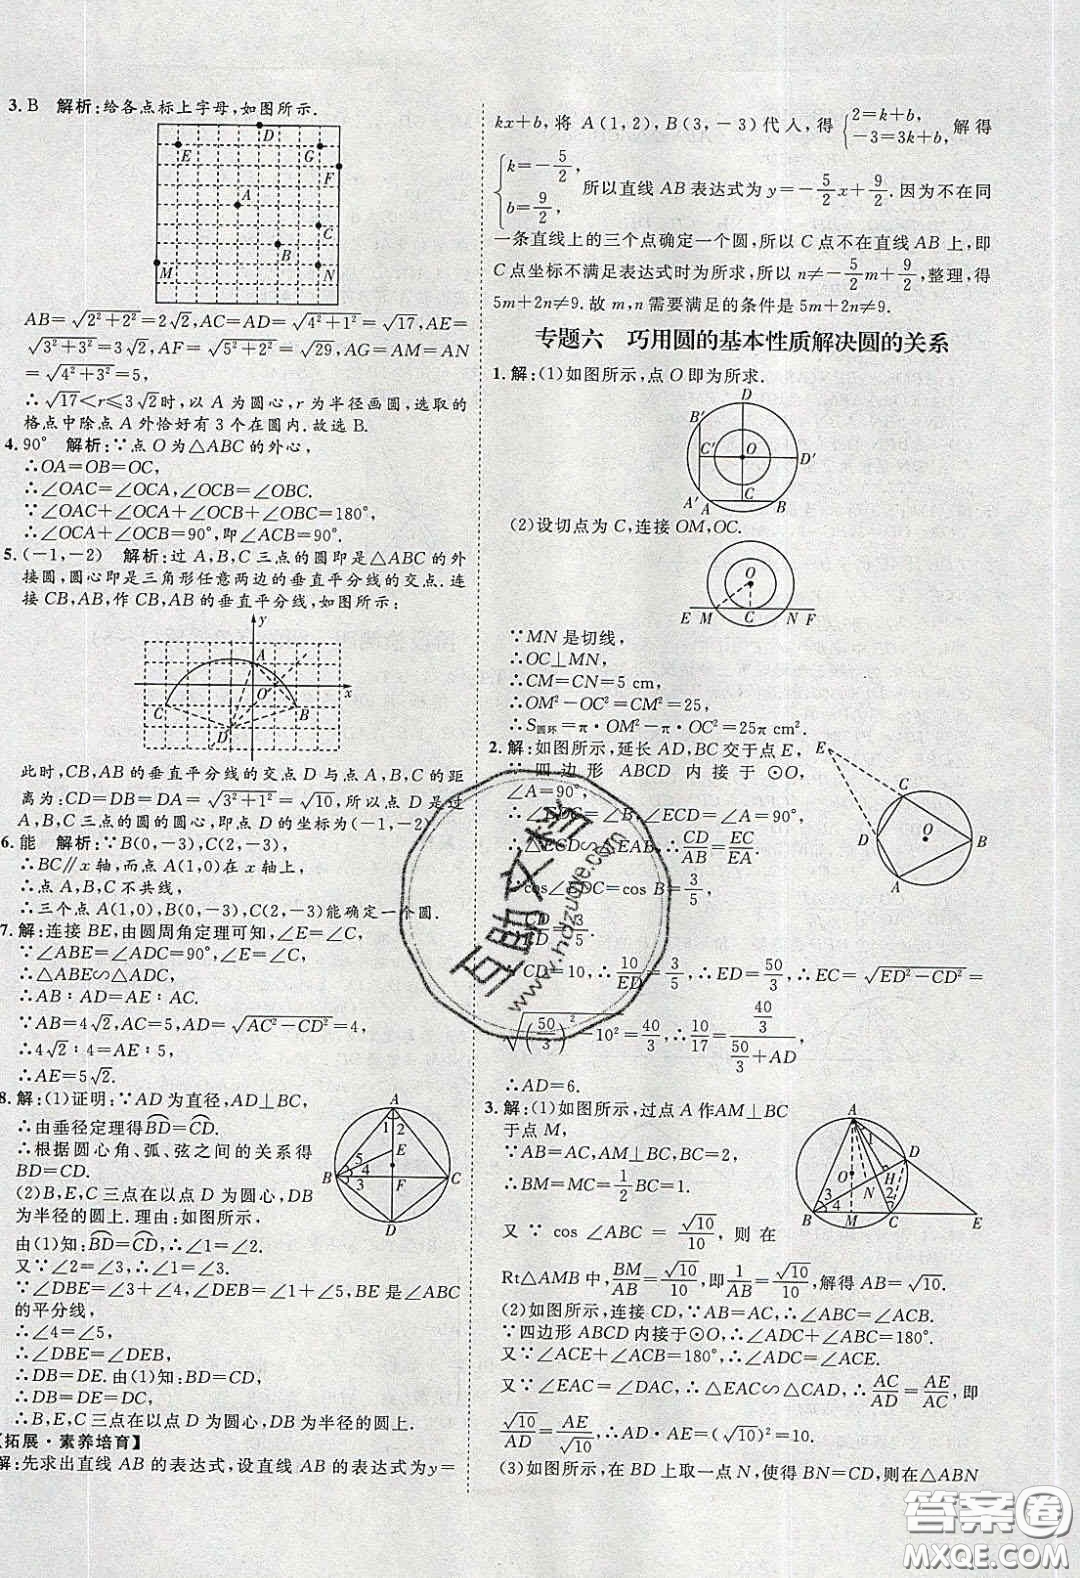 3. B 解析:给各点标上字母,如图所示.
D
E
G
F
A
C
B
M
N
AB=√(2²+2²)=2√2,AC=AD=√(4²+1²)=√17,AE=
√(3²+3²)=3√2,AF=√(5²+2²)=√29,AG=AM=AN
=√(4²+3²)=5,
∴√17<r≤3√2时,以A为圆心,r为半径画圆,选取的
格点中除点A外恰好有3个在圆内.故选B.
4. 90° 解析:∵点O为△ABC的外心,
∴OA=OB=OC,
∴∠OAC=∠OCA,∠OCB=∠OBC.
∵∠OAC+∠OCA+∠OCB+∠OBC=180°,
∴∠OCA+∠OCB=90°,即∠ACB=90°.
5. (-1,-2) 解析:过A,B,C三点的圆即是△ABC的外
接圆,圆心即是三角形任意两边的垂直平分线的交点.连
接CB,AB,作CB,AB的垂直平分线,如图所示:
y
A
O
x
C
B
D
此时,CB,AB的垂直平分线的交点D与点A,B,C的距
离为:CD=DB=DA=√(3²+1²)=√10,所以点D是过
A,B,C三点的圆的圆心,即点D的坐标为(-1,-2)
6. 能 解析:∵B(0,-3),C(2,-3),
∴BC∥x轴,而点A(1,0)在x轴上,
∴点A,B,C不共线.
∴三个点A(1,0),B(0,-3),C(2,-3)能确定一个圆.
7. 解:连接BE,由圆周角定理可知,∠E=∠C,
∵∠ABE=∠ADC=90°,∠E=∠C,
∴△ABE∽△ADC,
∴AB∶AD=AE∶AC.
∵AB=4√2,AC=5,AD=√(AC²-CD²)=4,
∴4√2∶4=AE∶5,
∴AE=5√2.
8. 解:(1)证明:∵AD为直径,AD⊥BC,
∴由垂径定理得BD⌒=CD⌒.
∴根据圆心角、弧、弦之间的关系得
BD=CD.
(2)B,E,C三点在以点D为圆心,DB
为半径的圆上.理由:如图所示,
由(1)知:BD⌒=CD⌒,∴∠1=∠2.
又∵∠2=∠3,∴∠1=∠3.
∵∠DBE=∠3+∠4,∠DEB=∠1+∠5,BE是∠ABC
的平分线,
∴∠4=∠5,
∴∠DBE=∠DEB,
∴DB=DE.由(1)知:BD=CD,
∴DB=DE=DC,
∴B,E,C三点在以点D为圆心,DB为半径的圆上.
【拓展·素养培育】
解:先求出直线AB的表达式,设直线AB的表达式为y=
kx+b,将A(1,2),B(3,-3)代入,得{2=k+b, -3=3k+b, 解得
{k=-5/2, b=9/2, 所以直线AB表达式为y=-5/2x+9/2.因为不在同
一条直线上的三个点确定一个圆,所以C点不在直线AB上,即
C点坐标不满足表达式时为所求,所以n≠-5/2m+9/2,整理,得
5m+2n≠9.故m,n需要满足的条件是5m+2n≠9.
专题六 巧用圆的基本性质解决圆的关系
1. 解:(1)如图所示,点O即为所求.
D
B′
C′
O
D′
A′
A
C
B
(2)设切点为C,连接OM,OC.
O
E M C N F
∵MN是切线,
∴OC⊥MN,
∴CM=CN=5 cm,
∴OM²-OC²=CM²=25,
∴S圆环=π·OM²-π·OC²=25π cm².
2. 解:如图所示,延长AD,BC交于点E,
∵四边形ABCD内接于⊙O,
∠A=90°,
∴∠EDC=∠B,∠ECD=∠A=90°,
∴△ECD∽△EAB,∴CD/AB=EC/EA.
∵cos∠EDC=cos B=3/5,
∴CD/ED=3/5.
∵CD=10,∴10/ED=3/5,∴ED=50/3,∴EC=√(ED²-CD²)=
√((50/3)²-10²)=40/3,∴10/17=(40/3)/(50/3+AD),
∴AD=6.
3. 解:(1)如图所示,过点A作AM⊥BC
于点M,
∵AB=AC,AM⊥BC,BC=2,
∴BM=MC=1/2BC=1.
又∵cos∠ABC=√10/10,则在
Rt△AMB中,BM/AB=√10/10,即1/AB=√10/10,解得AB=√10.
(2)如图所示,连接CD,∵AB=AC,∴∠ABC=∠ACB.
∵四边形ABCD内接于⊙O,∴∠ADC+∠ABC=180°.
又∵∠ACE+∠ACB=180°,∴∠ADC=∠ACE.
又∵∠EAC=∠DAC,∴△EAC∽△CAD,∴AC/AD=AE/AC,即
√10/AD=AE/√10,∴AD·AE=(√10)²=10.
(3)如图所示,在BD上取一点N,使得BN=CD,则在△ABN
互助文档
www.hdzuoye.com
答案圈
MXQE.COM